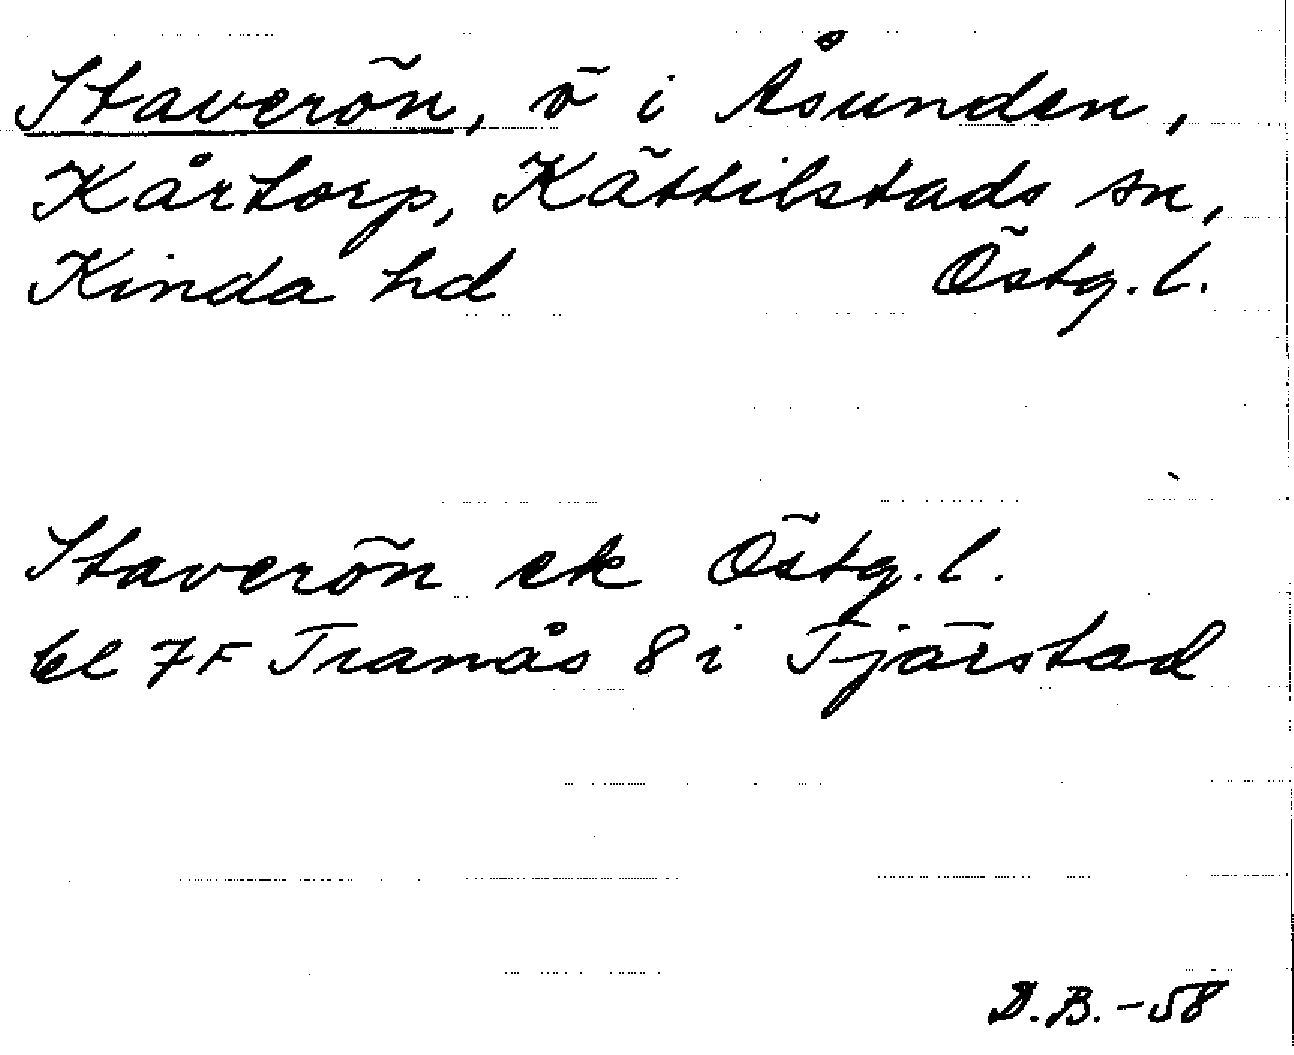 Staverön, ö i Åsunden,
Kårtorp, Kättilstads sn,
Kinda hd Östg. l.
Staverön ek Östg. l.
bl 7F Tranås 8 i Tjärstad
D.B. - 58